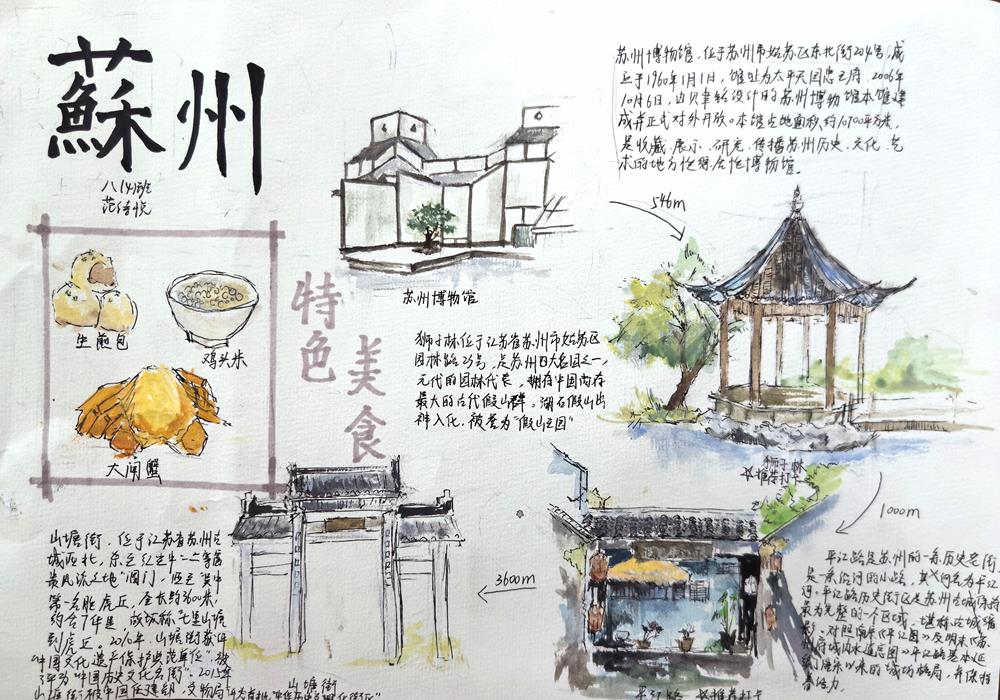 蘇州
八(4)班
苏州博物馆,位于苏州市姑苏区东北街204号,成
立于1960年1月1日,馆址为太平天国忠王府,2006年
10月6日,由贝聿铭设计的苏州博物馆本馆建
成并正式对外开放。本馆占地面积约10700平方米,
是收藏、展示、研究、传播苏州历史、文化、艺
术的地方性综合性博物馆。
546m
生煎包
鸡头米
大闸蟹
特色
美食
苏州博物馆
狮子林位于江苏省苏州市姑苏区
园林路23号,是苏州四大名园之一,
元代的园林代表,拥有中国尚存
最大的古代假山群。湖石假山出
神入化,被誉为"假山王国"
狮子林
☆推荐打卡
1000m
平江路是苏州的一条历史老街,
是一条沿河的小路,其河名为平江
河。平江路历史街区是苏州古城保存
最为完整的一个区域,堪称古城缩
影。对照南宋《平江图》及明末《苏
州府城内水道总图》,平江路基本延
续了唐宋以来的城坊格局,并保持
3600m
山塘街,位于江苏省苏州古
城西北,东至红尘中一二等富
贵风流之地"阊门",西至"吴中
第一名胜虎丘,全长约3600米,
约合7华里,故俗称"七里山塘
到虎丘。2010年,山塘街获
山塘街
平江路 ☆推荐打卡